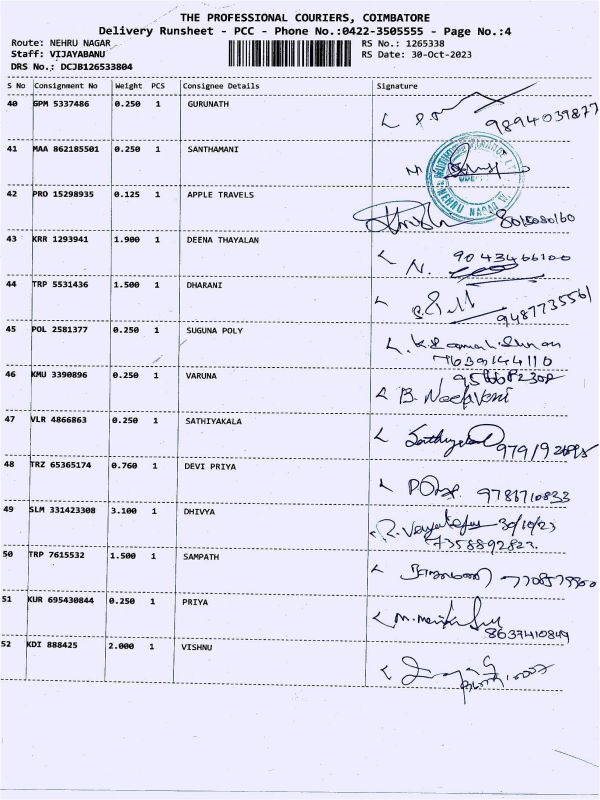 THE PROFESSIONAL COURIERS, COIMBATORE
Delivery Runsheet - PCC - Phone No.:0422-3505555 - Page No.:4
Route: NEHRU NAGAR RS No.: 1265338
Staff: VIJAYABANU RS Date: 30-Oct-2023
DRS No.: DCJB126533804
S No Consignment No Weight PCS Consignee Details Signature
40 GPM 5337486 0.250 1 GURUNATH
9894039877
41 MAA 862185501 0.250 1 SANTHAMANI
NEHRU NAGAR
42 PRO 15298935 0.125 1 APPLE TRAVELS
43 KRR 1293941 1.900 1 DEENA THAYALAN
9043466100
N.
44 TRP 5531436 1.500 1 DHARANI
9487735561
45 POL 2581377 0.250 1 SUGUNA POLY
7639144110
46 KMU 3390896 0.250 1 VARUNA
B. Neelaveni
47 VLR 4866863 0.250 1 SATHIYAKALA
48 TRZ 65365174 0.760 1 DEVI PRIYA
9786710833
49 SLM 331423308 3.100 1 DHIVYA
30/10/23
7358892823.
50 TRP 7615532 1.500 1 SAMPATH
51 KUR 695430844 0.250 1 PRIYA
8637410849
52 KDI 888425 2.000 1 VISHNU